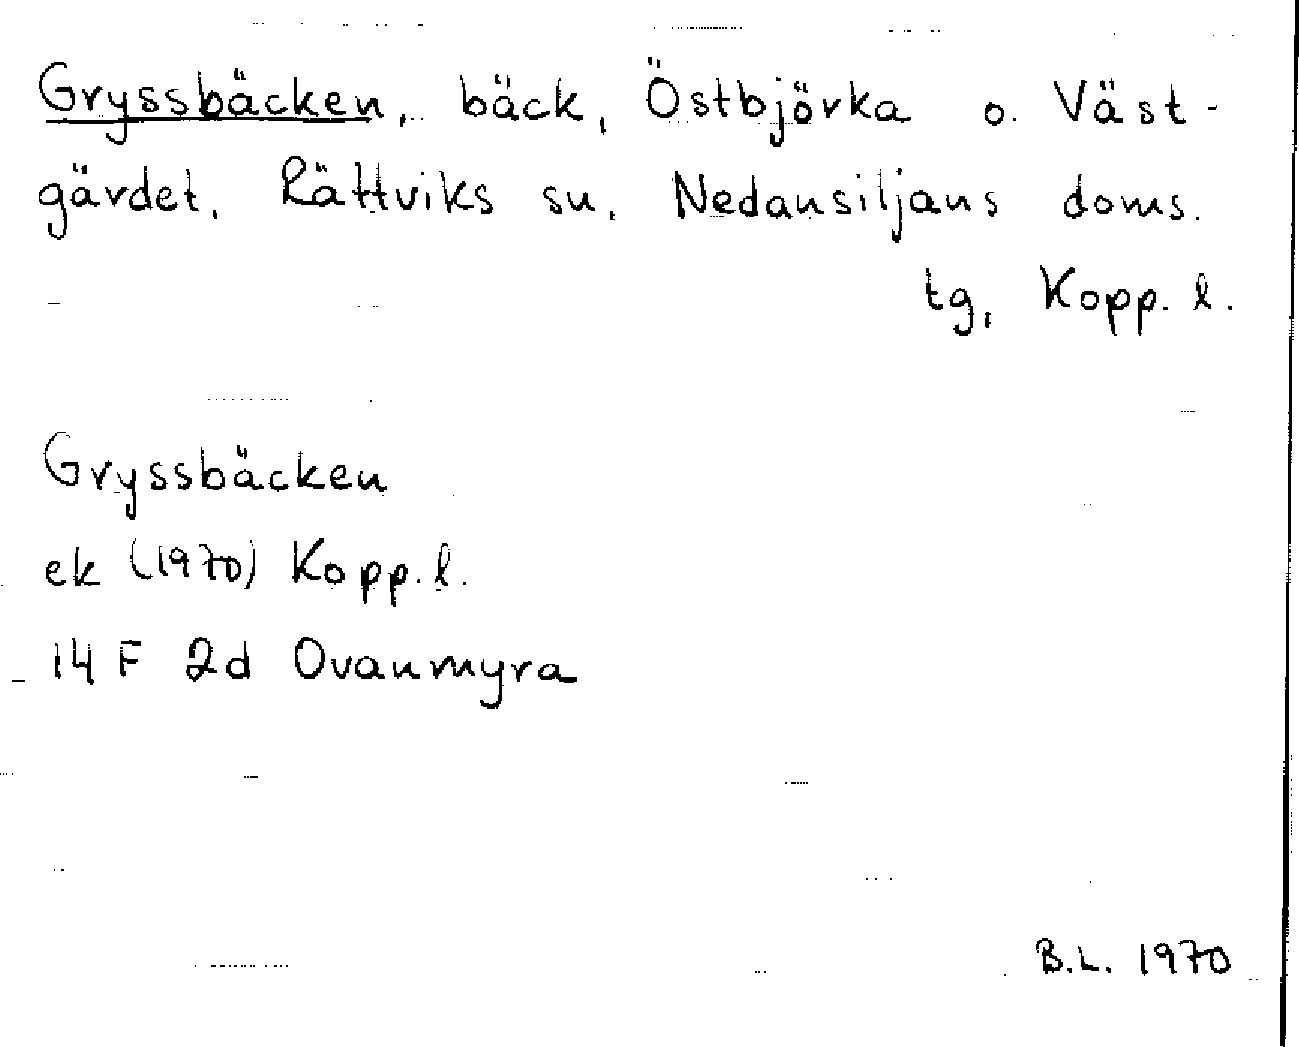 Gryssbäcken, bäck, Östbjörka o. Väst-
gärdet, Rättviks sn, Nedansiljans doms.
tg, Kopp. l.
Gryssbäcken
ek (1970) Kopp. l.
14 F 2d Ovanmyra
B.L. 1970